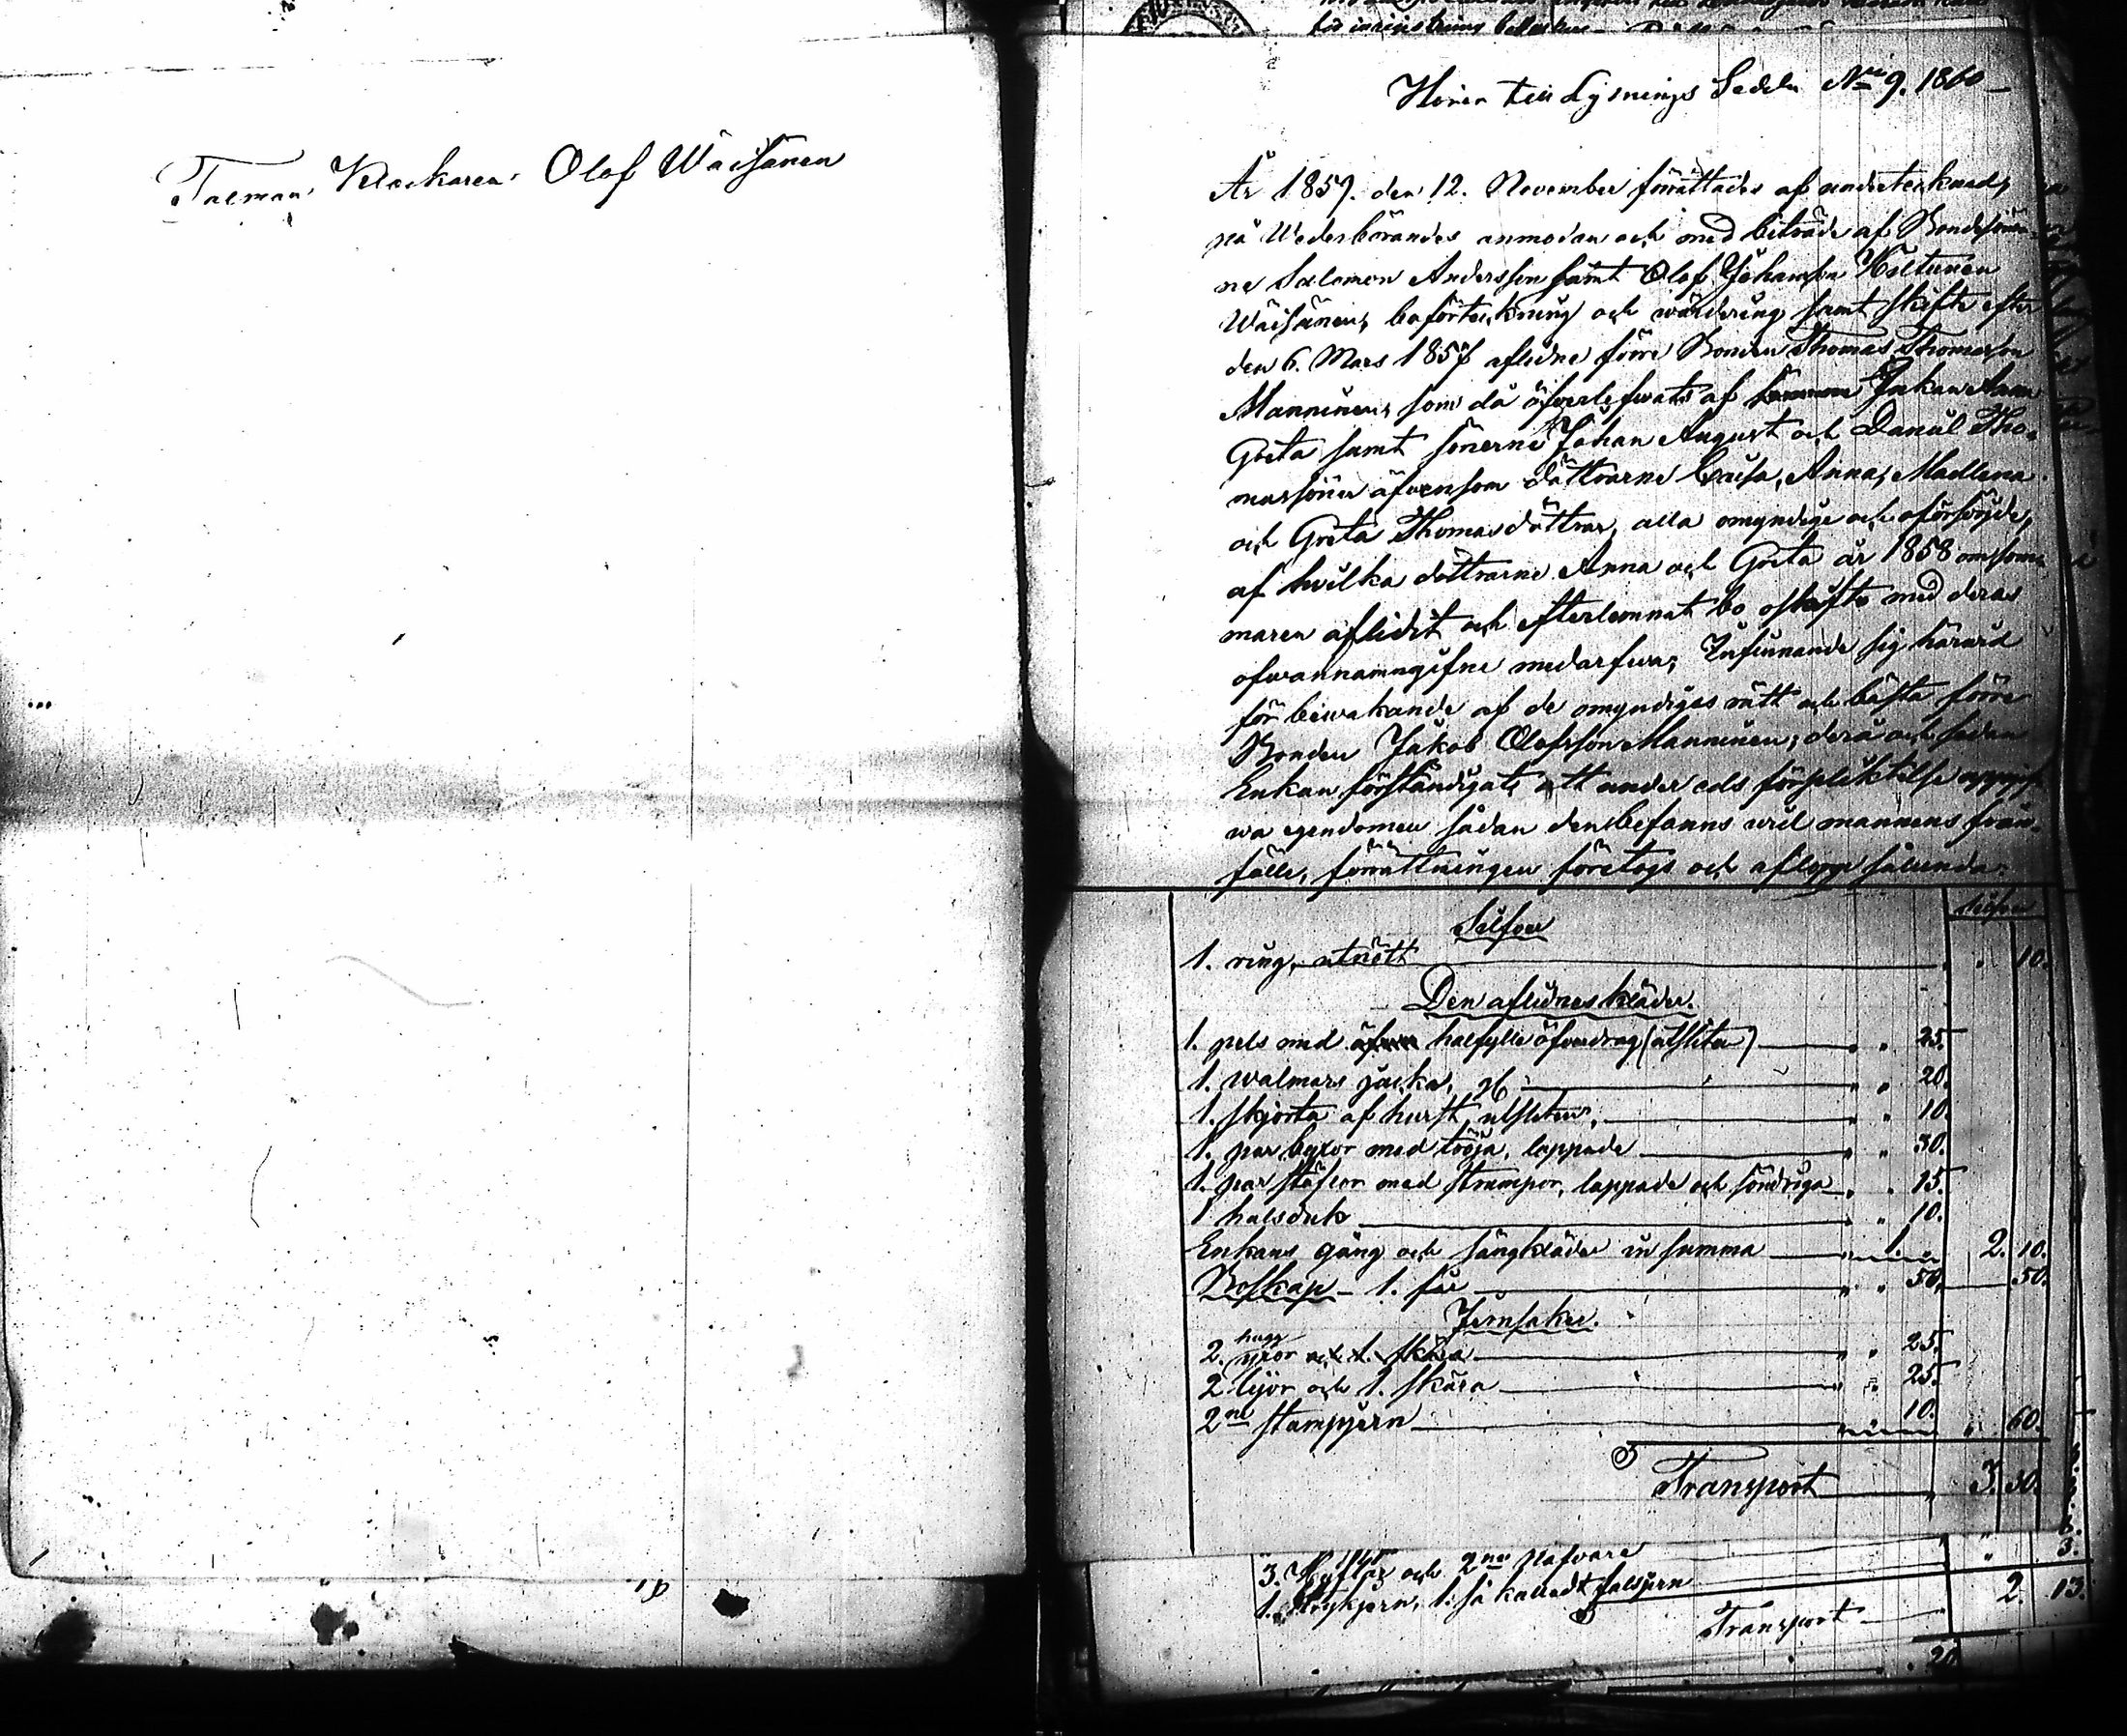 Talman, Klockaren Olof Wäisänen
Hörer till Lysnings Sedeln Nro 9. 1860
År 1859. den 12. November förrättades af undertecknad,
på Wederbörandes anmodan och med biträde af Bondesöner-
ne Salomon Andersson samt Olof Johansson Hultunen
Wäisänen, boförteckning och wärdering samt skifte efter
den 6. Mars 1857 aflidne förre Bonden Thomas Thomasson
Manninen, som då öfverlefwats af Enkan Anna
Greta samt sönerne Johan August och Daniel Tho-
massöner äfvensom döttrarne Caisa, Anna, Madlena
och Greta Thomasdöttrar, alla omyndige och oförsörjde,
af hwilka döttrarne Anna och Greta år 1858 om som-
maren aflidit och efterlemnat bo oskifte med deras
ofwannamngifne medarfwar; Infinnande sig härwid
för bewakande af de omyndiges rätt och bästa förre
Bonden Jakob Olofsson Manninen; derå och sedan
Enkan förständigats att under eds förpliktelse uppgif-
wa egendomen sådan den befanns wid mannens från-
fälle, förrättningen företogs och aflopp sålunda:
Silfver
Silfwer
1. ring, utnött 10.
Den aflidnes kläder.
1. pels med halfylle öfverdrag (utsliten) 25.
1. walmars jacka, 20.
1. skjorta af hurst, utsliten, 10.
1. par byxor med tröja, lappade 30.
1. par stöflor med strumpor, lappade och söndriga 15.
1 halsduk 10.
Enkans gång och sängkläder in summa 1. 2. 10.
Boskap - 1. får 50. 50.
Jernsaker.
2. hugg yxor 25.
2 lijor och 1. skära 25.
2ne stampjern 10. 60.
Transport 3. 30.
3. Hyflar och 2ne Nafvare
1. så kalladt falsjern 3.
Transport 2. 13.
20